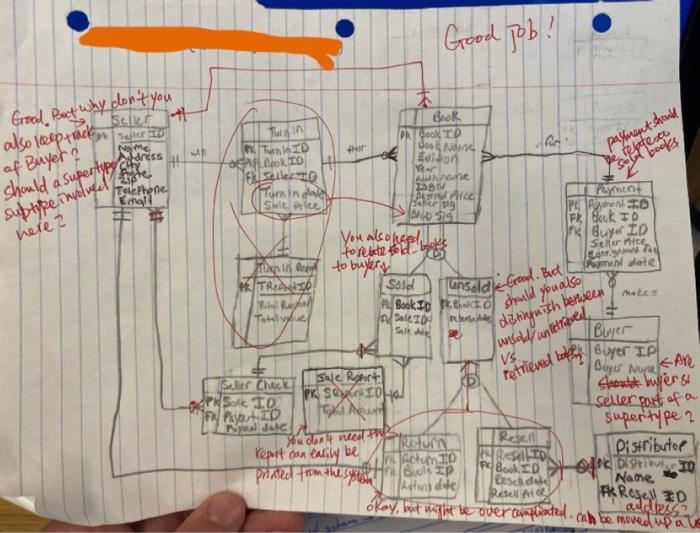 Good Job!
Good. But why don't you
also keep track
of Buyer?
should a supertype
subtype involved
here?
Seller
PK Seller ID
Name
Address
City
State
ZIP
Telephone
Email
Turn in
PK Turn In ID
Book ID
FK Seller ID
Turn In date
Sale Price
Book
PK Book ID
Book Name
Edition
Year
Auth name
ISBN
Desired Price
Seller Sig
Drop Sig
for
payment should
be relate to
sold books
Payment
PK Payment ID
FK Book ID
FK Buyer ID
Seller Price
Consignment Fee
Payment date
makes
Buyer
Buyer ID
Buyer Name
Are
buyer &
seller part of a
supertype?
You also need
to relate sold books
to buyer
Turn In Report
PK TReport ID
Total value
Sold
PK Book ID
FK Sale ID
Sale date
Unsold
PK Book ID
release date
Good. But
should you also
distinguish between
unsold/unretrieved
vs.
retrieved books?
Seller Check
PK Sale ID
FK Payout ID
Payout date
Sale Report
PK SReport ID
Total Amount
You don't need this
report can easily be
printed from the system
Return
PK Return ID
FK Book ID
Return date
Resell
PK Resell ID
FK Book ID
Resell date
Resell Price
Distributor
PK Distributor ID
Name
FK Resell ID
address?
okay, but might be over complicated. can be moved up a